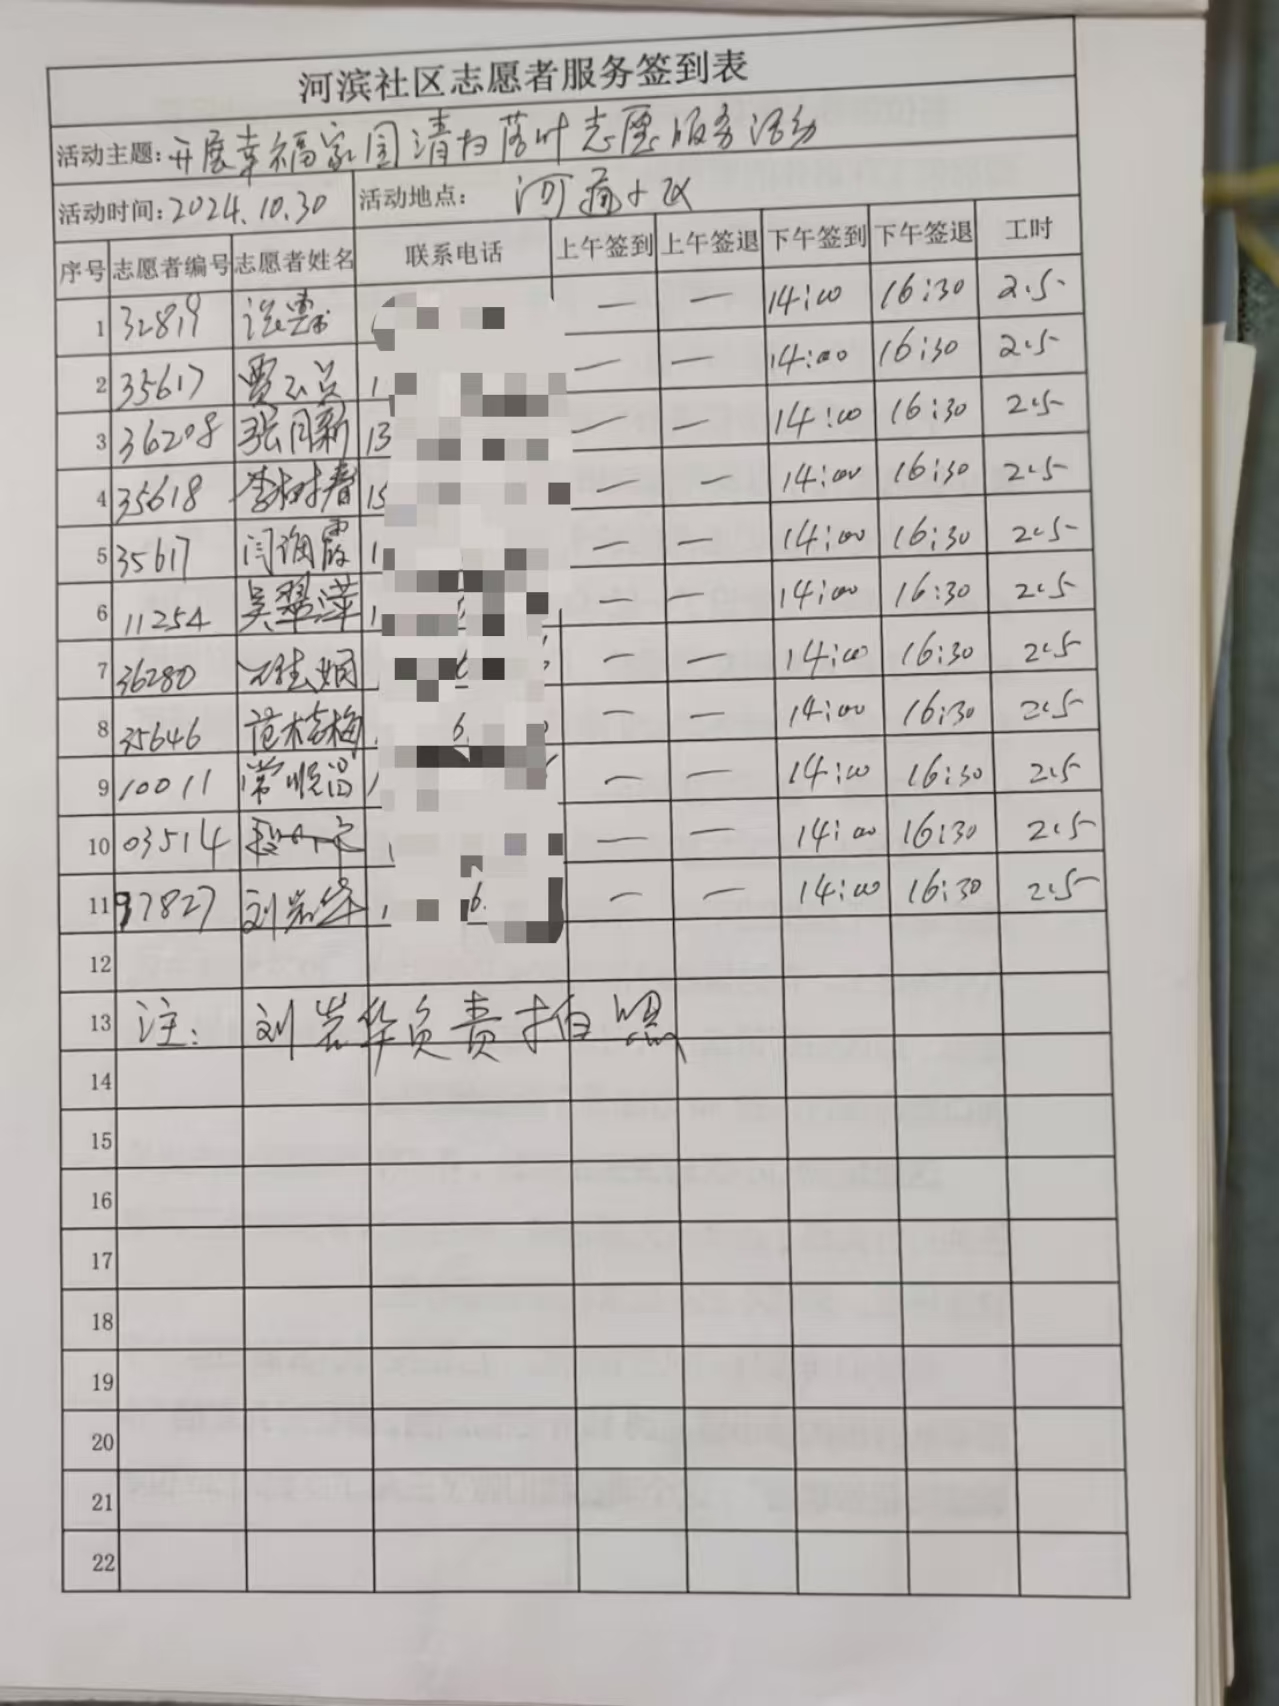 河滨社区志愿者服务签到表
活动主题：开展幸福家园清扫落叶志愿服务活动
活动时间：2024.10.30 活动地点：河 小区
序号 志愿者编号 志愿者姓名 联系电话 上午签到 上午签退 下午签到 下午签退 工时
1 32819 — — 14:00 16:30 2.5
2 35617 贾 — — 14:00 16:30 2.5
3 36208 张月新 13 — — 14:00 16:30 2.5
4 35618 李树春 15 — — 14:00 16:30 2.5
5 35617 闫 霞 1 — — 14:00 16:30 2.5
6 11254 吴翠萍 1 — — 14:00 16:30 2.5
7 36280 娟 — — 14:00 16:30 2.5
8 35646 范桂梅 6 — — 14:00 16:30 2.5
9 10011 常顺 1 — — 14:00 16:30 2.5
10 03514 1 — — 14:00 16:30 2.5
11 97827 刘岩华 1 6. — — 14:00 16:30 2.5
12
13 注：刘岩华负责拍照
14
15
16
17
18
19
20
21
22